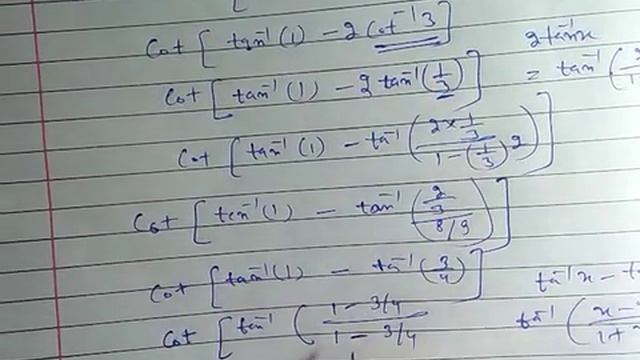 Cot [ tan⁻¹(1) - 2 Cot⁻¹3 ]
2 tan⁻¹x
Cot [ tan⁻¹(1) - 2 tan⁻¹(1/3) ]
= tan⁻¹(
Cot [ tan⁻¹(1) - tan⁻¹( (2×1/3) / (1-(1/3)2) ) ]
Cot [ tan⁻¹(1) - tan⁻¹( (2/3) / (8/9) ) ]
Cot [ tan⁻¹(1) - tan⁻¹(3/4) ]
tan⁻¹x -
Cot [ tan⁻¹( (1-3/4) / (1-3/4)
tan⁻¹( (x-) / (1+